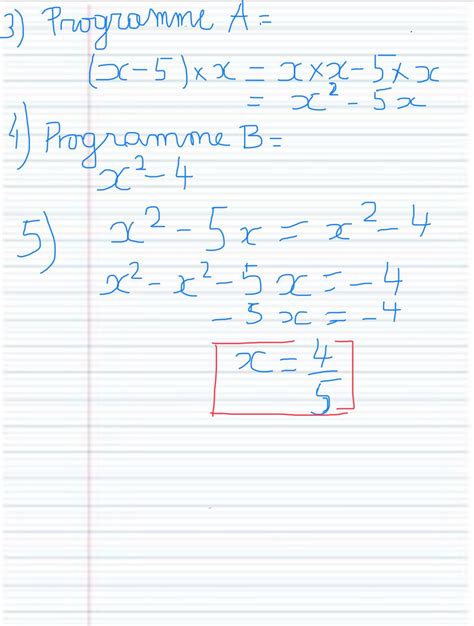 3) Programme A =
(x-5)×x = x×x-5×x
= x² - 5x
4) Programme B =
x²-4
5) x² - 5x = x² - 4
x² - x² - 5x = -4
- 5x = -4
x = 4/5